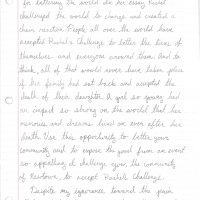 for bettering the world. In her essay Rachel
challenged the world to change and created a
chain reaction. People all over the world have
accepted Rachel's Challenge to better the lives of
themselves and everyone around them. And to
think, all of that would never have taken place
if her family had sat back and accepted the
death of their daughter. A girl so young had
an impact so strong on the world that her
memories and dreams lived on even after her
death. Use this opportunity to better your
community and to expose the good from an event
so appalling. I challenge you, the community
of Newtown, to accept Rachel's Challenge.
Despite my ignorance toward the pain